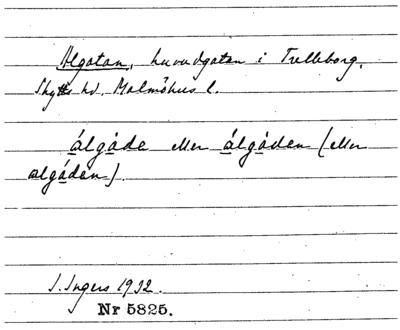 Algatan, huvudgatan i Trelleborg,
Skytts hd. Malmöhus l.
álgåde eller álgåden (eller
algåden).
I. Ingers 1932.
Nr 5825.